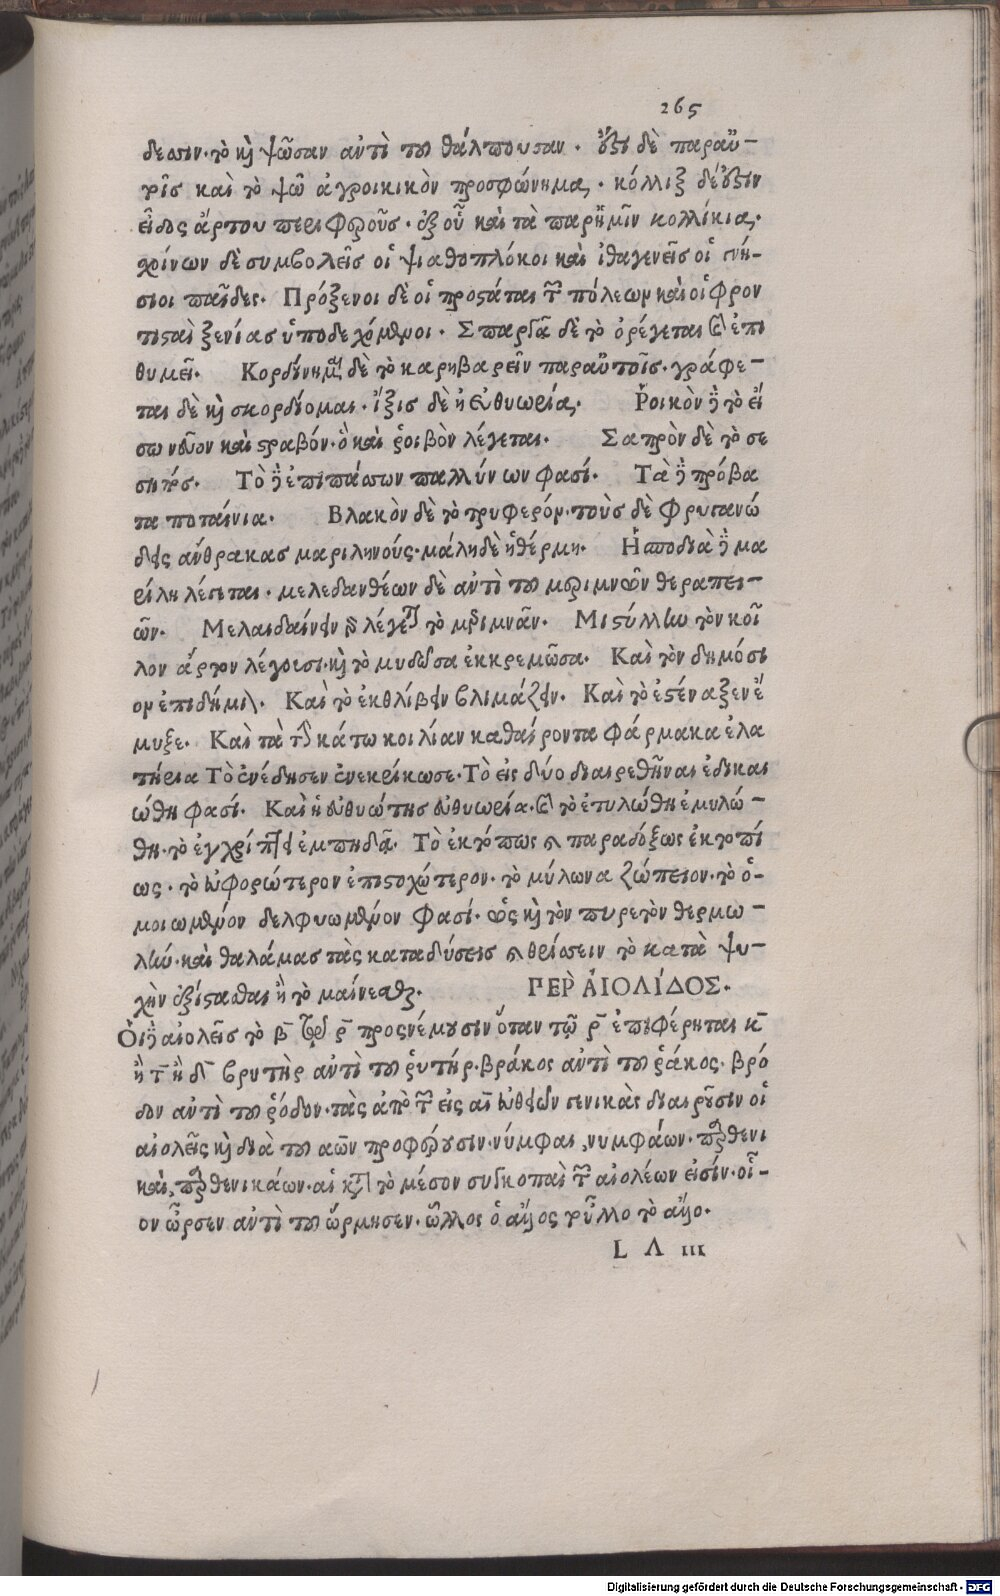 265
δεασιν·τὸ κỳ ψῶσαν αὐτὶ τοῦ θάλπουσαν· ὄξι δὲ παραὐ–
τοῖς καὶ τὸ ψῶ ἀγροικικὸν προσφώνημα· κόλλιξ δέ
εἶδος ἄρτου περιφεροῦς· ἐξ οὗ καὶ τὰ παρ'ἡμῖν κολλίκια·
σχοίνων δὲ συμβολεῖς οἱ ψιαθοπλόκοι καὶ ἰθαγενεῖς οἱ γνή–
σιοι παῖδες· Πρόξενοι δὲ οἱ προστάται τῶν πόλεων καὶ οἱ φρον
τισταὶ ξενίας ὑποδεχόμενοι· Σπαργᾶ δὲ τὸ ὀρέγεται καὶ ἐπι
θυμεῖ· Κορδύνημα δὲ τὸ καρηβαρεῖν παραὐτοῖς·γράφε–
ται δὲ καὶ σκορδύομαι·ἴξις δὲ ἡ εὐθυωρία· Ῥοικὸν δὲ τὸ εἴ
σω νεῦον καὶ στραβόν·ὃ καὶ ῥοιβὸν λέγεται· Σαπρὸν δὲ τὸ σε
σηπός· Τὸ δὲ ἐπιπάσσων παλλύνων φασί· Τὰ δὲ πρόβα
τα ποταίνια· Βλακὸν δὲ τὸ τρυφερόν·τοὺς δὲ φρυγανώ
δεις ἄνθρακας μαριληνούς·μάλη δὲ ἡ θέρμη· Ἡ σποδιὰ δὲ μα
ρίλη λέγεται·μελεδανθέων δὲ αὐτὶ τοῦ μεριμνῶν θεραπευ–
ῶν· Μελαιδαίνειν δὲ λέγεται τὸ μεριμνᾶν· Μιστύλλην τὸν κοῖ
λον ἄρτον λέγουσι·καὶ τὸ μυδῶσα ἐκκρεμῶσα· Καὶ τὸν δημόσι
ον ἐπιδήμιον· Καὶ τὸ ἐκθλίβειν βλιμάζειν· Καὶ τὸ ἐστέναξεν ἔ
μυξε· Καὶ τὰ τὴν κάτω κοιλίαν καθαίροντα φάρμακα ἐλα
τήρια Τὸ ἐνέδησεν ἐνεκρίκωσε·Τὸ εἰς δύο διαιρεθῆναι ἐδικαι
ώθη φασί· Καὶ ἡ εὐθυότης εὐθυωρία·καὶ τὸ ἐτυλώθη ἐμυλώ–
θη·τὸ ἐγχρίπτει ἐμπηδᾶ· Τὸ ἐκτόπως καὶ παραδόξως ἐκτοπί
ως·τὸ εὐφορώτερον ἐπιστοχώτερον·τὸ μύλωνα ζώπειον·τὸ ὁ–
μοιωμένον δελφυωμένον φασί·ὡς καὶ τὸν πυρετὸν θερμω–
λήν·καὶ θαλάμας τὰς καταδύσεις καὶ θρίασειν τὸ κατὰ ψυ–
χὴν ἐξίστασθαι ἢ τὸ μαίνεσθαι· ΠΕΡῚ ΑἸΟΛΊΔΟΣ·
Οἱ δὲ αἰολεῖς τὸ β̄ τῷ ρ̄ προσνέμουσιν ὅταν τῷ ρ̄ ἐπιφέρηται κ̄
ἢ τ̄ ἢ δ̄ βρυτὴρ αὐτὶ τοῦ ῥυτήρ·βράκος αὐτὶ τοῦ ῥάκος·βρό
δον αὐτὶ τοῦ ῥόδον·τὰς ἀπὸ τῶν εἰς αῖ εὐθειῶν γενικὰς διαιροῦσιν οἱ
αἰολεῖς καὶ διὰ τοῦ αων προφέρουσιν·νύμφαι,νυμφάων·παρθενι
καὶ,παρθενικάων·αἱ κατὰ τὸ μέσον συγκοπαὶ τῶν αἰολέων εἰσίν·οἷ–
ον ὦρσεν αὐτὶ τοῦ ὥρμησεν·ὦλλος ὁ ἄλλος τοῦλλο τὸ ἄλλο·
L Λ III